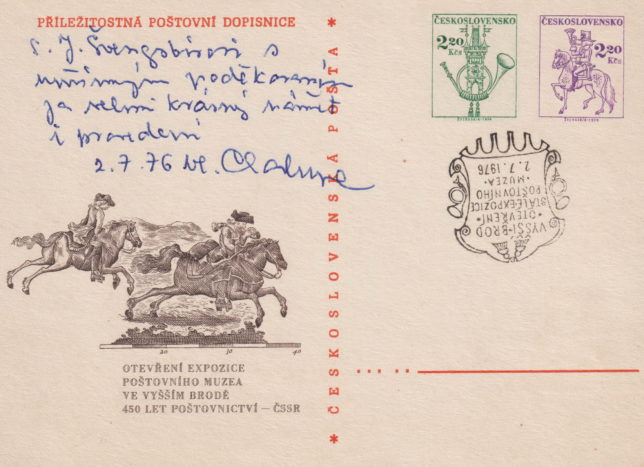 PŘÍLEŽITOSTNÁ POŠTOVNÍ DOPISNICE
s. J. Švengsbírovi s
upřímným poděkováním
za velmi krásný námět
i provedení
2.7.76 Vl.
20 30 40
OTEVŘENÍ EXPOZICE
POŠTOVNÍHO MUZEA
VE VYŠŠÍM BRODĚ
450 LET POŠTOVNICTVÍ – ČSSR
* ČESKOSLOVENSKÁ POŠTA *
ČESKOSLOVENSKO
2.20
Kčs
ČESKOSLOVENSKO
2.20
Kčs
VYŠŠÍ-BROD
• OTEVŘENÍ •
STÁLÉ EXPOZICE
POŠTOVNÍHO
• MUZEA •
2.7.1976